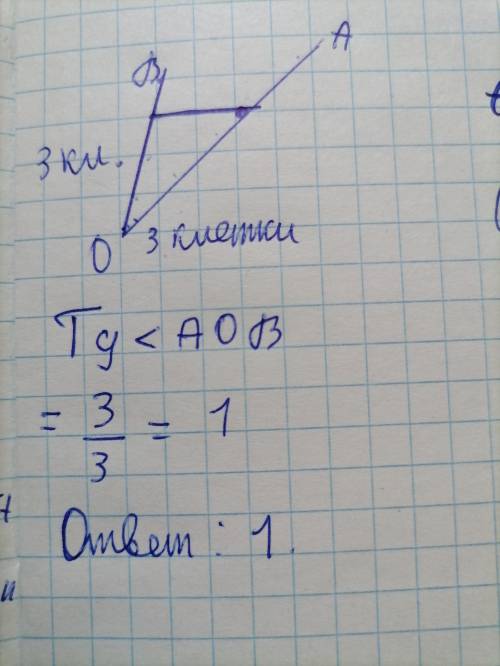 A
B
3 кл.
O 3 клетки
Tg < AOB
= 3/3 = 1
Ответ: 1.